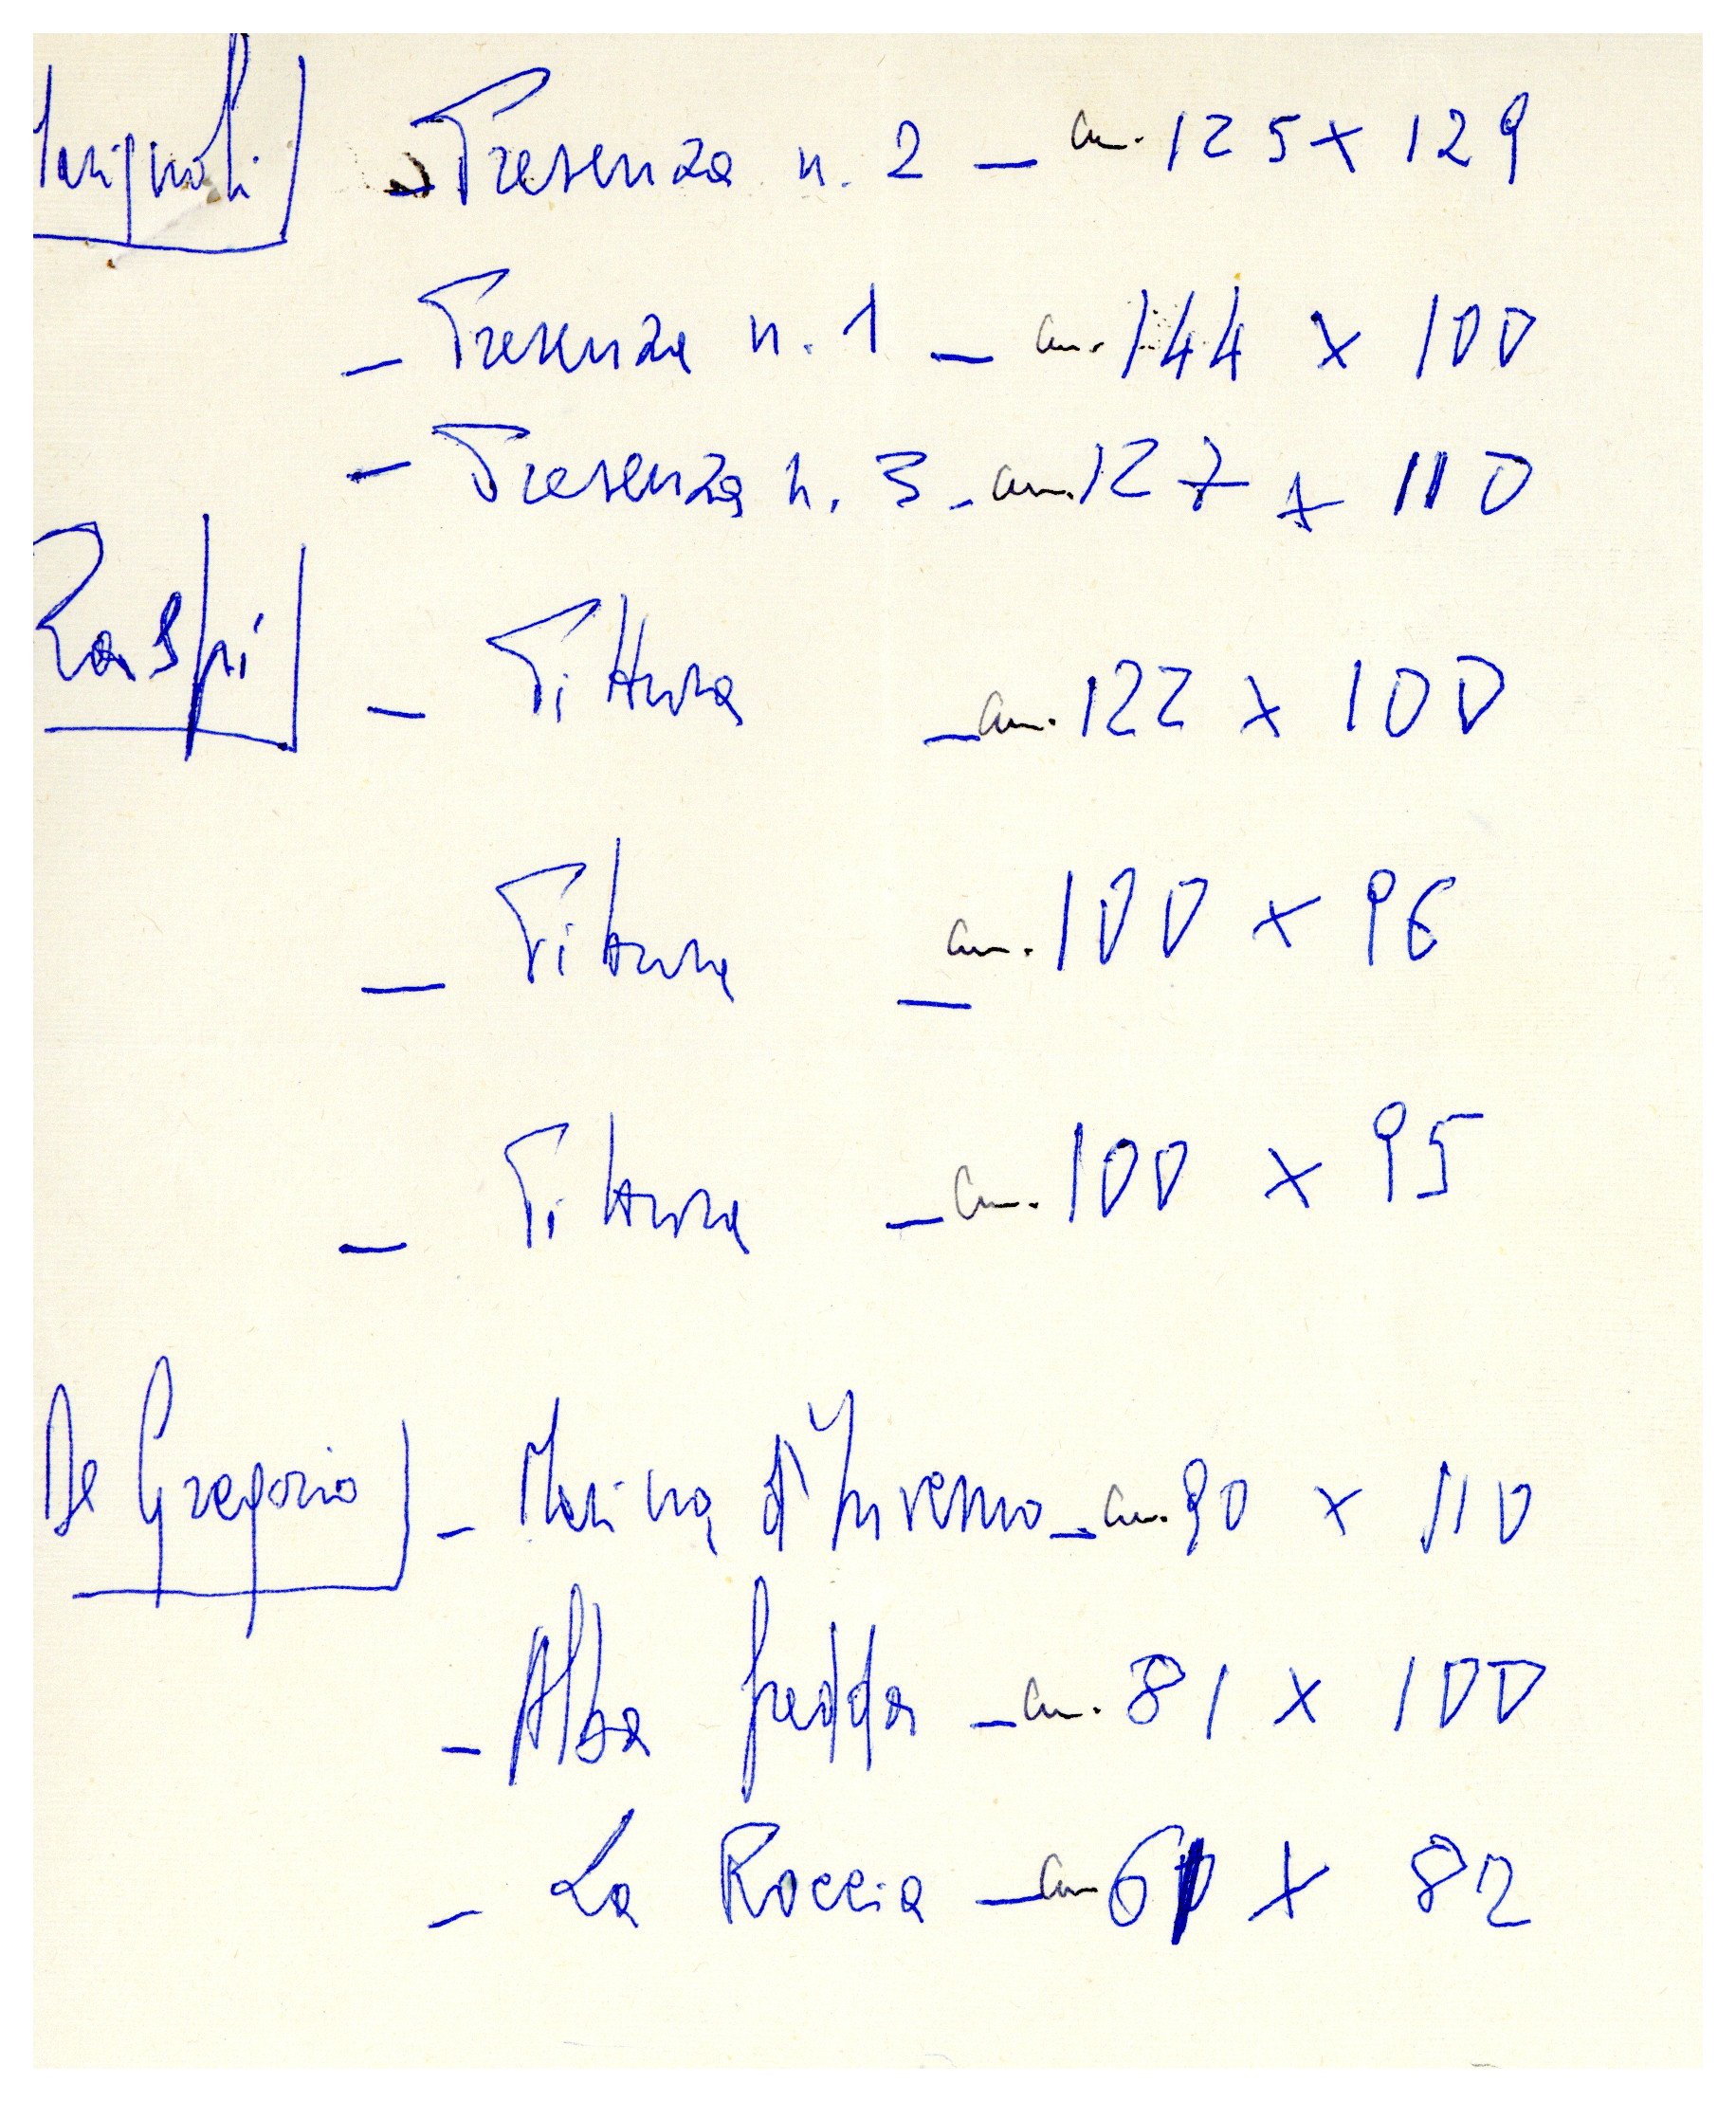 Marignoli - Presenza n. 2 - cm. 125 x 129
- Presenza n. 1 - cm. 144 x 100
- Presenza n. 3 - cm. 127 x 110
Raspi - Pittura - cm. 122 x 100
- Pittura - cm. 100 x 96
- Pittura - cm. 100 x 95
De Gregorio - Marina d'Inverno - cm. 90 x 110
- Alba fredda - cm. 81 x 100
- La Roccia - cm. 61 x 82